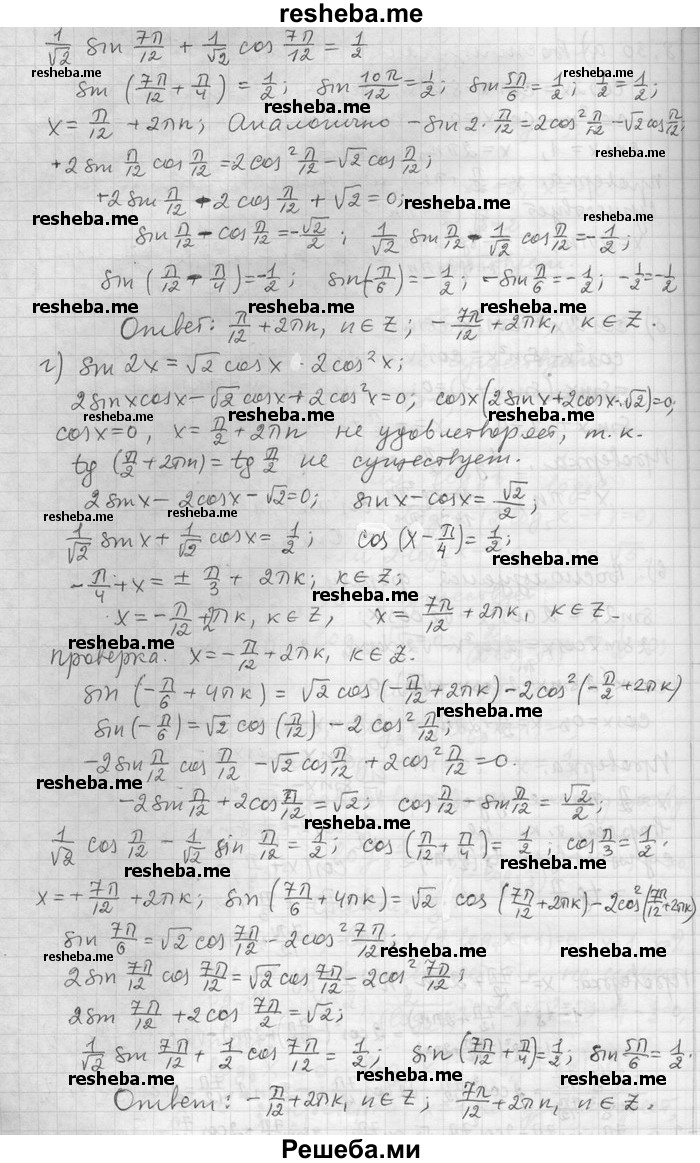 resheba.me
1/√2 sin 7π/12 + 1/√2 cos 7π/12 = 1/2
resheba.me resheba.me
sin (7π/12 + π/4) = 1/2; sin 10π/12 = 1/2; sin 5π/6 = 1/2; 1/2 = 1/2;
resheba.me
x = π/12 + 2πn; Аналогично – sin 2·π/12 = 2cos² π/12 – √2 cos π/12;
resheba.me
+2 sin π/12 cos π/12 = 2cos² π/12 – √2 cos π/12;
resheba.me
+2 sin π/12 – 2 cos π/12 + √2 = 0;
resheba.me resheba.me
sin π/12 – cos π/12 = –√2/2; 1/√2 sin π/12 – 1/√2 cos π/12 = –1/2;
sin (π/12 – π/4) = –1/2; sin(–π/6) = –1/2; –sin π/6 = –1/2; –1/2 = –1/2
resheba.me resheba.me resheba.me
Ответ: π/12 + 2πn, n ∈ Z; –7π/12 + 2πk, k ∈ Z.
г) sin 2x = √2 cos x · 2cos² x;
resheba.me resheba.me
2 sin x cos x – √2 cos x + 2cos² x = 0; cos x (2 sin x + 2cos x – √2) = 0;
resheba.me resheba.me
cos x = 0, x = π/2 + 2πn не удовлетворяет, т. к.
tg (π/2 + 2πn) = tg π/2 не существует.
resheba.me
2 sin x – 2 cos x – √2 = 0; sin x – cos x = √2/2;
resheba.me resheba.me
1/√2 sin x + 1/√2 cos x = 1/2; cos (x – π/4) = 1/2;
resheba.me
–π/4 + x = ± π/3 + 2πk; k ∈ Z;
resheba.me
x = –π/12 + 2πk, k ∈ Z, x = 7π/12 + 2πk, k ∈ Z.
resheba.me
Проверка. x = –π/12 + 2πk, k ∈ Z.
sin (–π/6 + 4πk) = √2 cos (–π/12 + 2πk) – 2cos² (–π/2 + 2πk)
resheba.me
sin (–π/6) = √2 cos (π/12) – 2 cos² π/12;
–2 sin π/12 cos π/12 – √2 cos π/12 + 2cos² π/12 = 0.
resheba.me resheba.me
–2 sin π/12 + 2cos π/12 = √2; cos π/12 – sin π/12 = √2/2;
resheba.me
1/√2 cos π/12 – 1/√2 sin π/12 = 1/2; cos (π/12 + π/4) = 1/2; cos π/3 = 1/2.
resheba.me resheba.me
x = + 7π/12 + 2πk; sin (7π/6 + 4πk) = √2 cos (7π/12 + 2πk) – 2cos² (7π/12 + 2πk)
sin 7π/6 = √2 cos 7π/12 – 2cos² 7π/12;
resheba.me resheba.me resheba.me
2 sin 7π/12 cos 7π/12 = √2 cos 7π/12 – 2cos² 7π/12;
2 sin 7π/12 + 2 cos 7π/2 = √2;
1/√2 sin 7π/12 + 1/2 cos 7π/12 = 1/2; sin (7π/12 + π/4) = 1/2; sin 5π/6 = 1/2.
resheba.me resheba.me resheba.me
Ответ: –π/12 + 2πk, n ∈ Z; 7π/12 + 2πn, n ∈ Z.
Решеба.ми